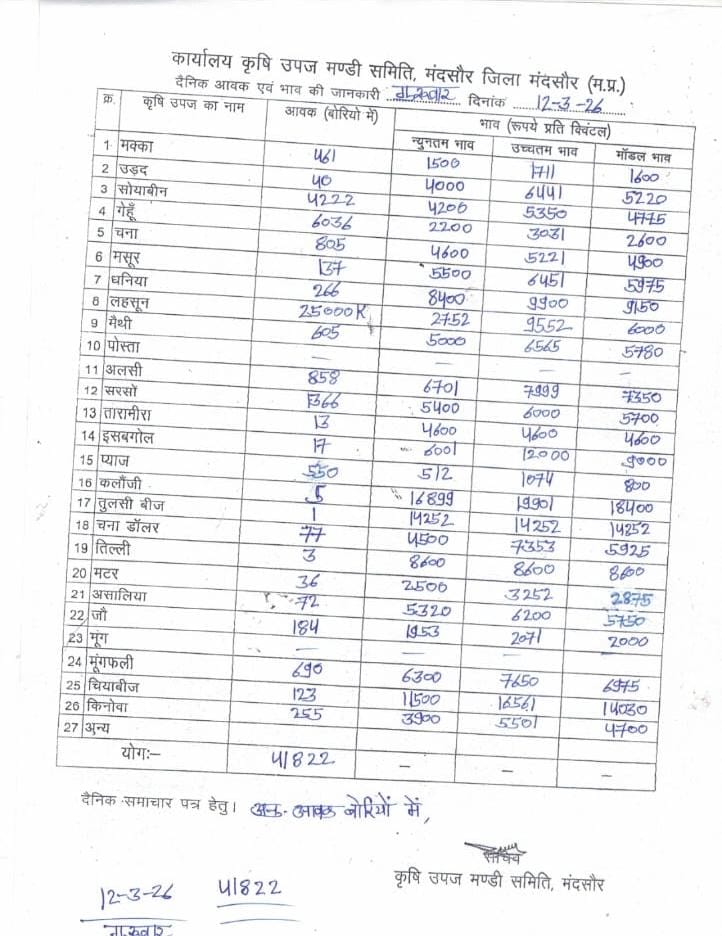 कार्यालय कृषि उपज मण्डी समिति, मंदसौर जिला मंदसौर (म.प्र.)
दैनिक आवक एवं भाव की जानकारी गुरूवार दिनांक 12-3-26
क्र. कृषि उपज का नाम आवक (बोरियो में) भाव (रूपये प्रति क्विंटल)
न्युनतम भाव उच्चतम भाव मॉडल भाव
1 मक्का 461 1500 1711 1600
2 उड़द 40 4000 6441 5220
3 सोयाबीन 4222 4200 5350 4775
4 गेहूँ 6036 2200 3031 2600
5 चना 805 4600 5221 4900
6 मसूर 137 5500 6451 5975
7 धनिया 266 8400 9900 9150
8 लहसून 25000K 2752 9552 6000
9 मैथी 605 5000 6565 5780
10 पोस्ता — — — —
11 अलसी 858 6701 7999 7350
12 सरसों 1366 5400 6000 5700
13 तारामीरा 13 4600 4600 4600
14 इसबगोल 17 6001 12000 9000
15 प्याज 550 512 1074 800
16 कलौंजी 5 16899 19901 18400
17 तुलसी बीज 1 14252 14252 14252
18 चना डॉलर 77 4500 7353 5925
19 तिल्ली 3 8600 8600 8600
20 मटर 36 2500 3252 2875
21 असालिया 72 5320 6200 5750
22 जौ 184 1953 2071 2000
23 मूंग — — — —
24 मूंगफली 690 6300 7650 6975
25 चियाबीज 123 11500 16561 14030
26 किनोवा 255 3900 5501 4700
27 अन्य
योगः— 41822 — — —
दैनिक समाचार पत्र हेतु। आवक बोरियों में,
सचिव
कृषि उपज मण्डी समिति, मंदसौर
12-3-26 41822
गुरूवार